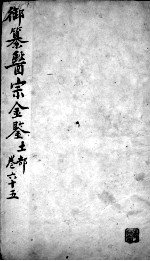 御纂醫宗金鑒
土部
卷六十五